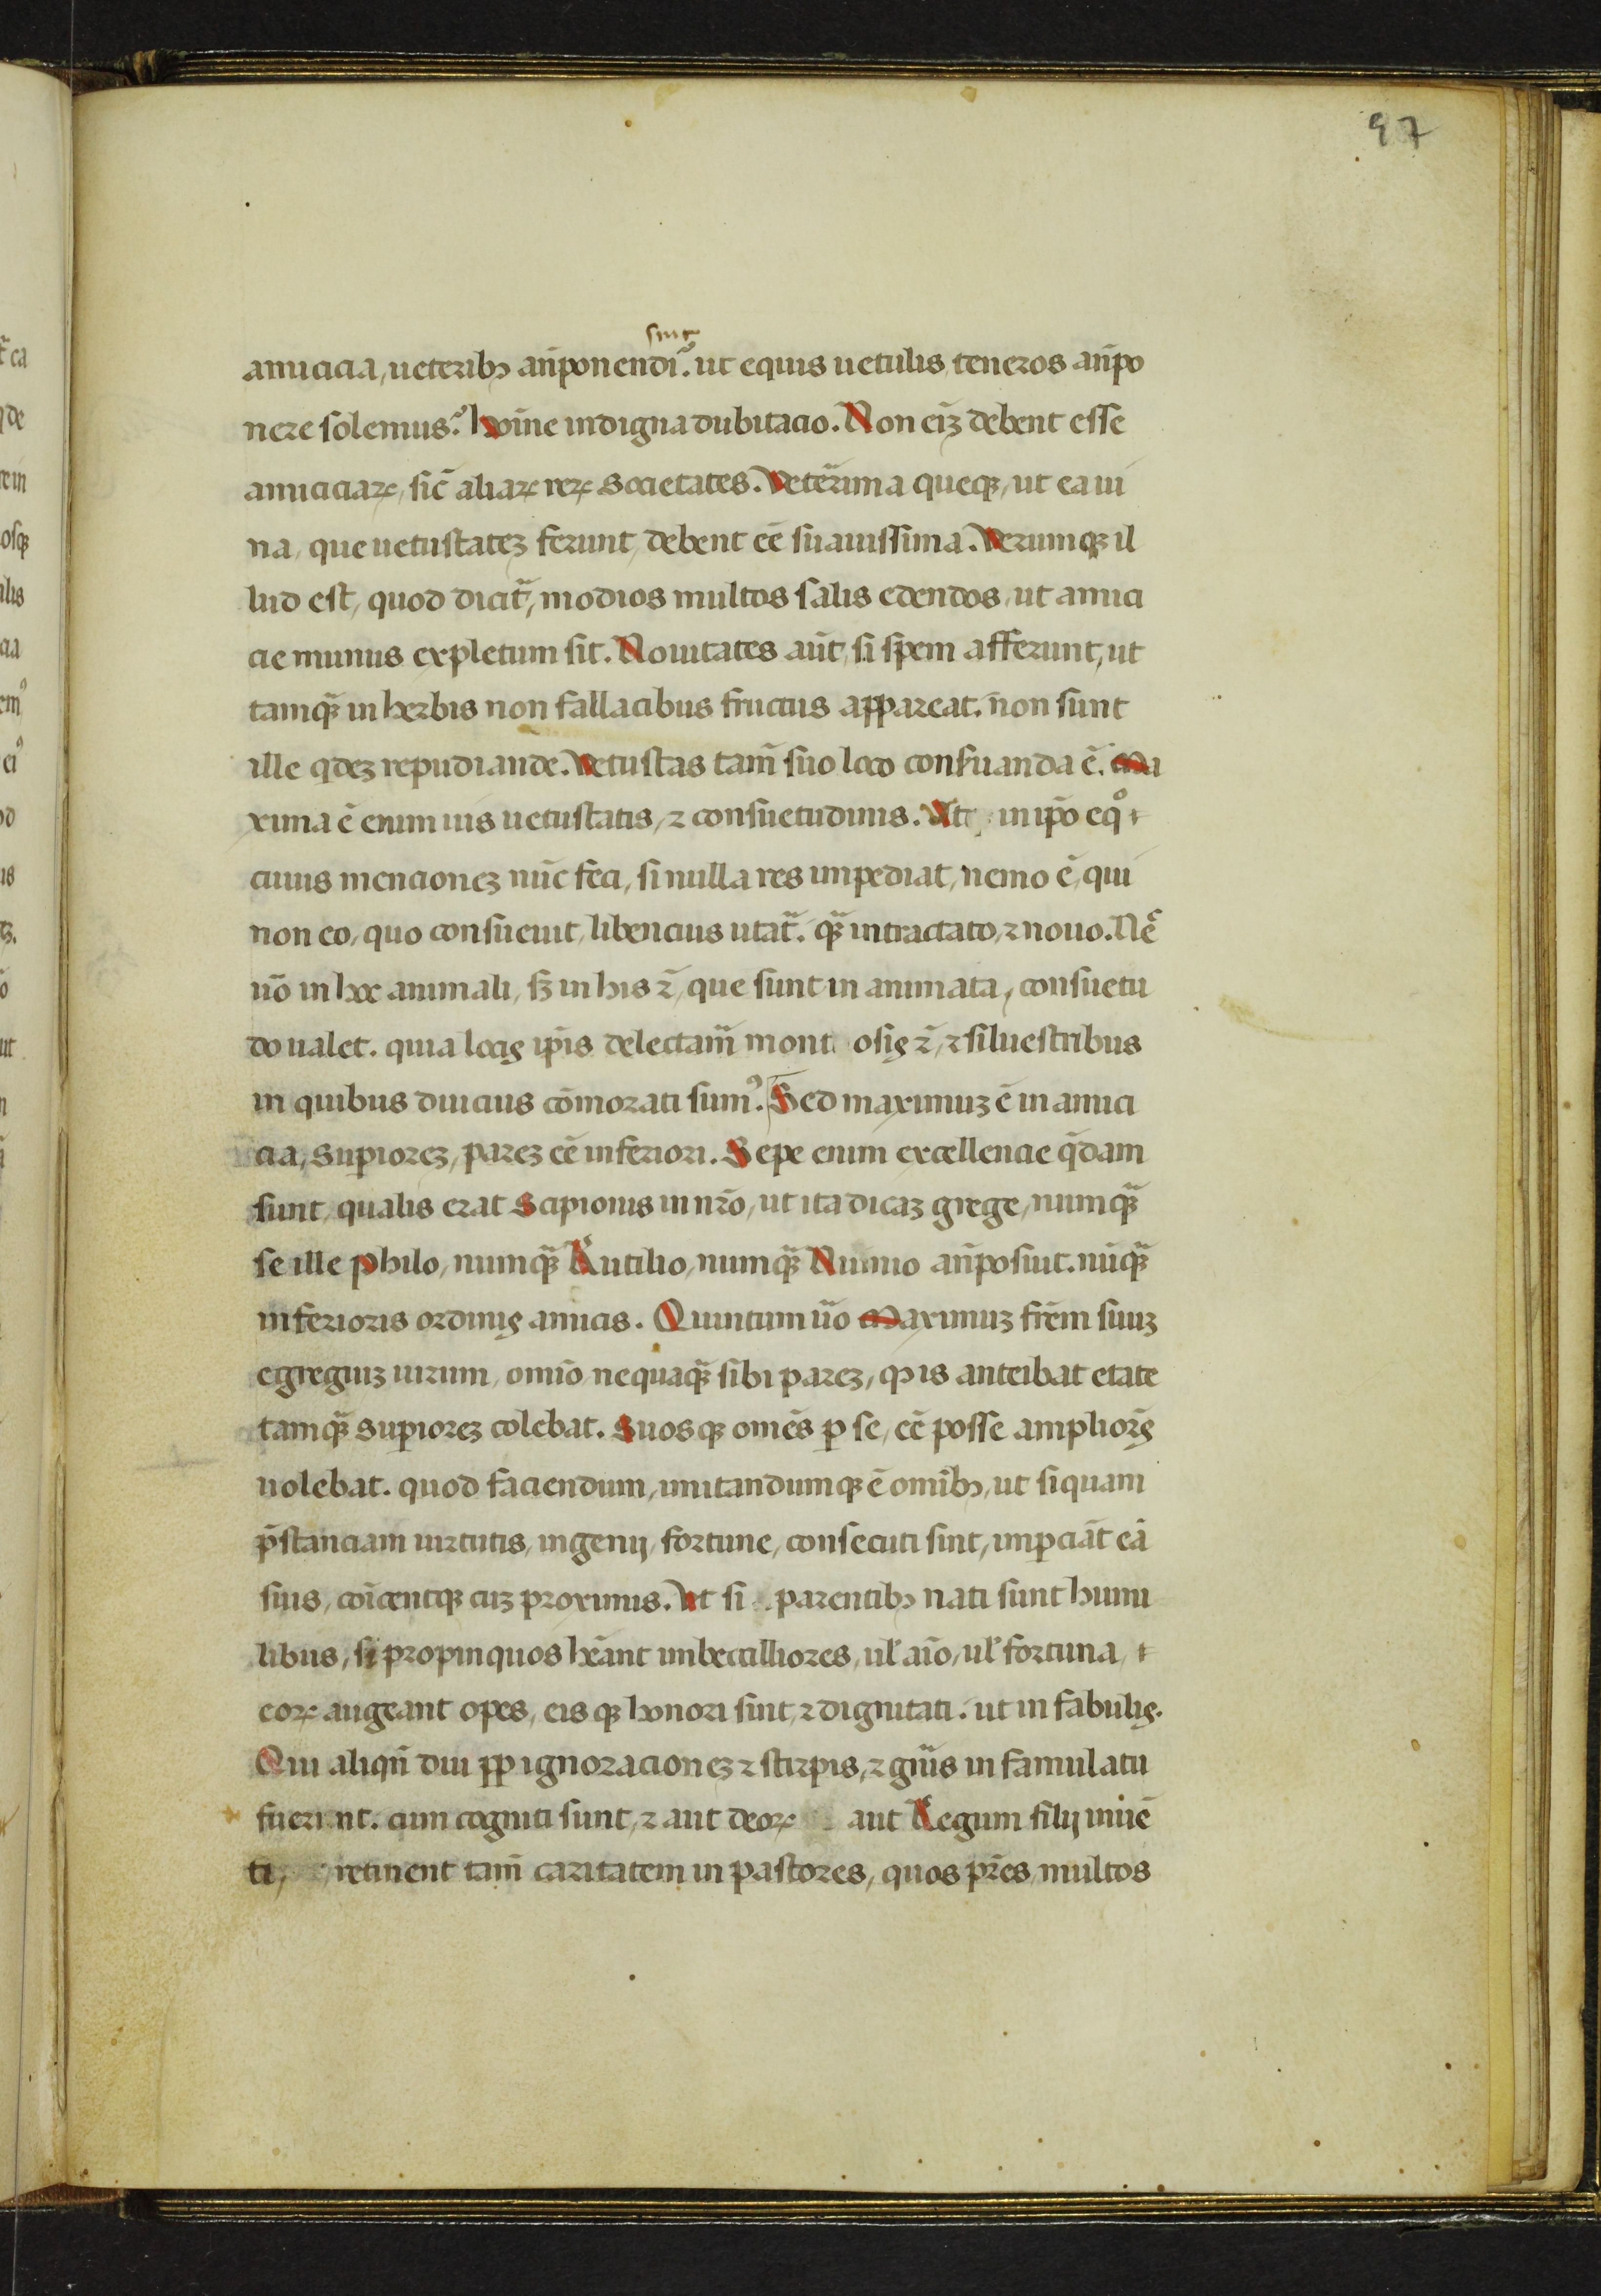 97
sint
amicicia, ueteribꝫ an̄ponendi? ut equis uetulis teneros an̄po
nere solemus? hoīne indigna dubitacio. Non eīꝫ debent esse
amiciciaꝝ, sic̄ aliaꝝ reꝝ societates. Veterrima queqꝫ, ut ea ui
na, que uetustateꝫ ferunt, debent eē suauissima. Verumqꝫ il
lud est, quod dicit᷑, modios multos salis edendos, ut amici
cie munus expletum sit. Nouitates aūt, si spem afferunt, ut
tamqꝫ̄ in herbis non fallacibus fructus appareat. non sunt
ille qdeꝫ repudiande. Vetustas tam̄ suo loco conſuanda ē. Ma
xima ē enim uis uetustatis, ⁊ consuetudinis. At in ip̄o eqº
cuius mencioneꝫ nūc feci, si nulla res impediat, nemo ē, qui
non eo, quo consueuit, libencius utat᷑. qꝫ̄ intractato, ⁊ nouo. Nec̄
uō in hoc animali, sꝫ in his ⁊̄, que sunt in animata, consuetu
do ualet. quia locis ip̄is delectam᷑ mont osis ⁊̄, ⁊ siluestribus
in quibus diucius cōmorati sumꝰ. Sed maximuꝫ ē in amici
cia, superioreꝫ, pareꝫ eē inferiori. Sepe enim excellencie q̄dam
sunt, qualis erat Scipionis in nr̄o, ut ita dicaꝫ grege, numqꝫ̄
se ille philo, numqꝫ̄ Rutilio, numqꝫ̄ Numio an̄posuit. nūqꝫ̄
inferioris ordinis amicis. Quintum uō Maximuꝫ frēm suuꝫ
egregiuꝫ uirum, omīo nequaqꝫ̄ sibi pareꝫ, ꝙ is anteibat etate
tamqꝫ̄ superioreꝫ colebat. Suosqꝫ omēs ꝑ se, eē posse ampliores
uolebat. quod faciendum, imitandumqꝫ ē omībꝫ, ut si quam
p̄stanciam uirtutis, ingenij, fortune, consecuti sint, imꝑciāt eā
suis, cōīcentqꝫ cuꝫ proximis. Ut si parentibꝫ nati sunt humi
libus, si propinquos hēant imbecilliores, ul̄ aīo, ul̄ fortuna,
eoꝝ augeant opes, eisqꝫ honori sint, ⁊ dignitati. ut in fabulis.
Qui aliqn̄ diu ꝓꝑ ignoracioneꝫ ⁊ stirpis, ⁊ gn̄is in famulatu
fuerint. cum cogniti sunt, ⁊ aut deoꝝ aut Regum filij inuē
ti, retinent tam̄ caritatem in pastores, quos pr̄es multos